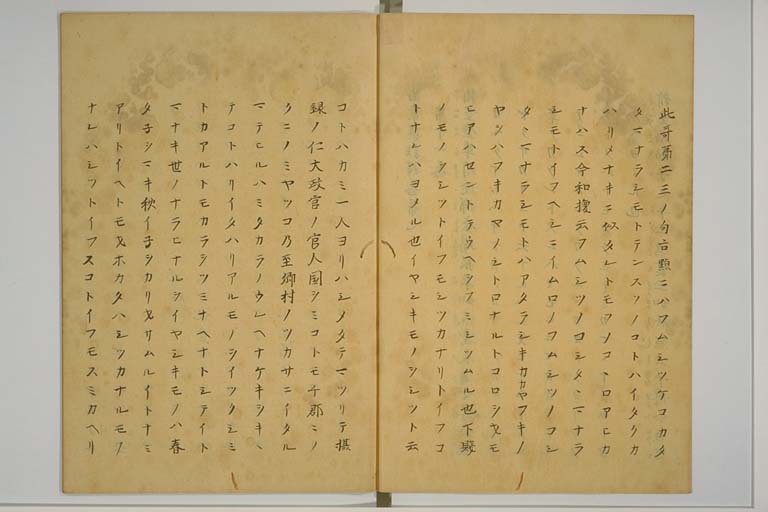 此哥第二三ノ句古點ニハフムシツケコカタ
タマナラシモトテンスソノコトハイタクカ
ハリメナキニ似タレトモソノコヽロアヒカ
ナハス今和換云フムシツノコシタヽマナラ
シモトイフヘシニイムロノフムシツノコシ
タヽマナラシモトハアタラシキカヤフキノ
ヤツハフキカヤノシトロナルトコロシ戈モ
ヒアハセントテウヘシフミシツムル也下賤
ノモノシシツトイフモシツカナリトイフコ
トナレハヨメル也イヤシキモノシシツト云
コトハカミ一人ヨリハシメタテマツリテ摂
録ノ仁大政官ノ官人国シミコトモチ郡ミノ
クニノミヤツコ乃至郷村ノツカサニイタル
マテヒルハミタカラノウレヘナケキシキヽ
テコトハリイタハリアルモノシイツクシミ
トカアルトモカラシツミナヘナトシテイト
マナキ世ノナラヒナルシイヤシキモノハ春
タ子シマキ秋イ子シカリ戈サムルイトナミ
アリトイヘトモ戈ホカタハシツカナルモノ
ナレハシツトイフスコトイフモスミカヘリ